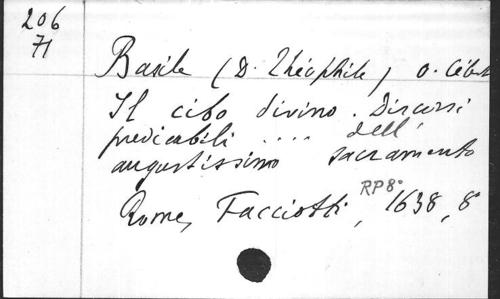 206
71
Basile (D. Théophile) o. Célest
Il cibo divino. Discorsi
predicabili .... dell'
augustissimo sacramento
RP 8°
Rome, Facciotti, 1638, 8°